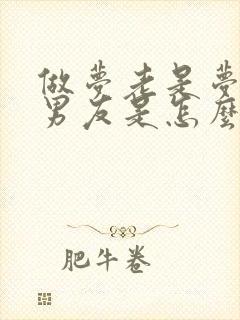 做夢老是夢
男友是怎麼
肥牛卷